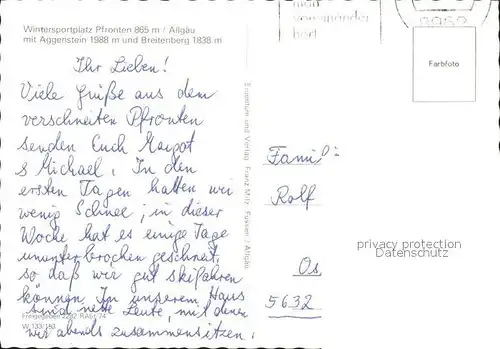 Wintersportplatz Pfronten 865 m / Allgäu
mit Aggenstein 1988 m und Breitenberg 1838 m
Ihr Lieben!
Viele Grüße aus dem
verschneiten Pfronten
senden Euch Margot
& Michael. In den
ersten Tagen hatten wir
wenig Schnee; in dieser
Woche hat es einige Tage
ununterbrochen geschneit,
so daß wir gut skifahren
können. In unserem Haus
sind nette Leute, mit denen
wir abends zusammensitzen.
Eigentum und Verlag Franz Milz Füssen / Allgäu
voneinander
hört
Farbfoto
Famil
Rolf
Os
5632
privacy protection
Datenschutz